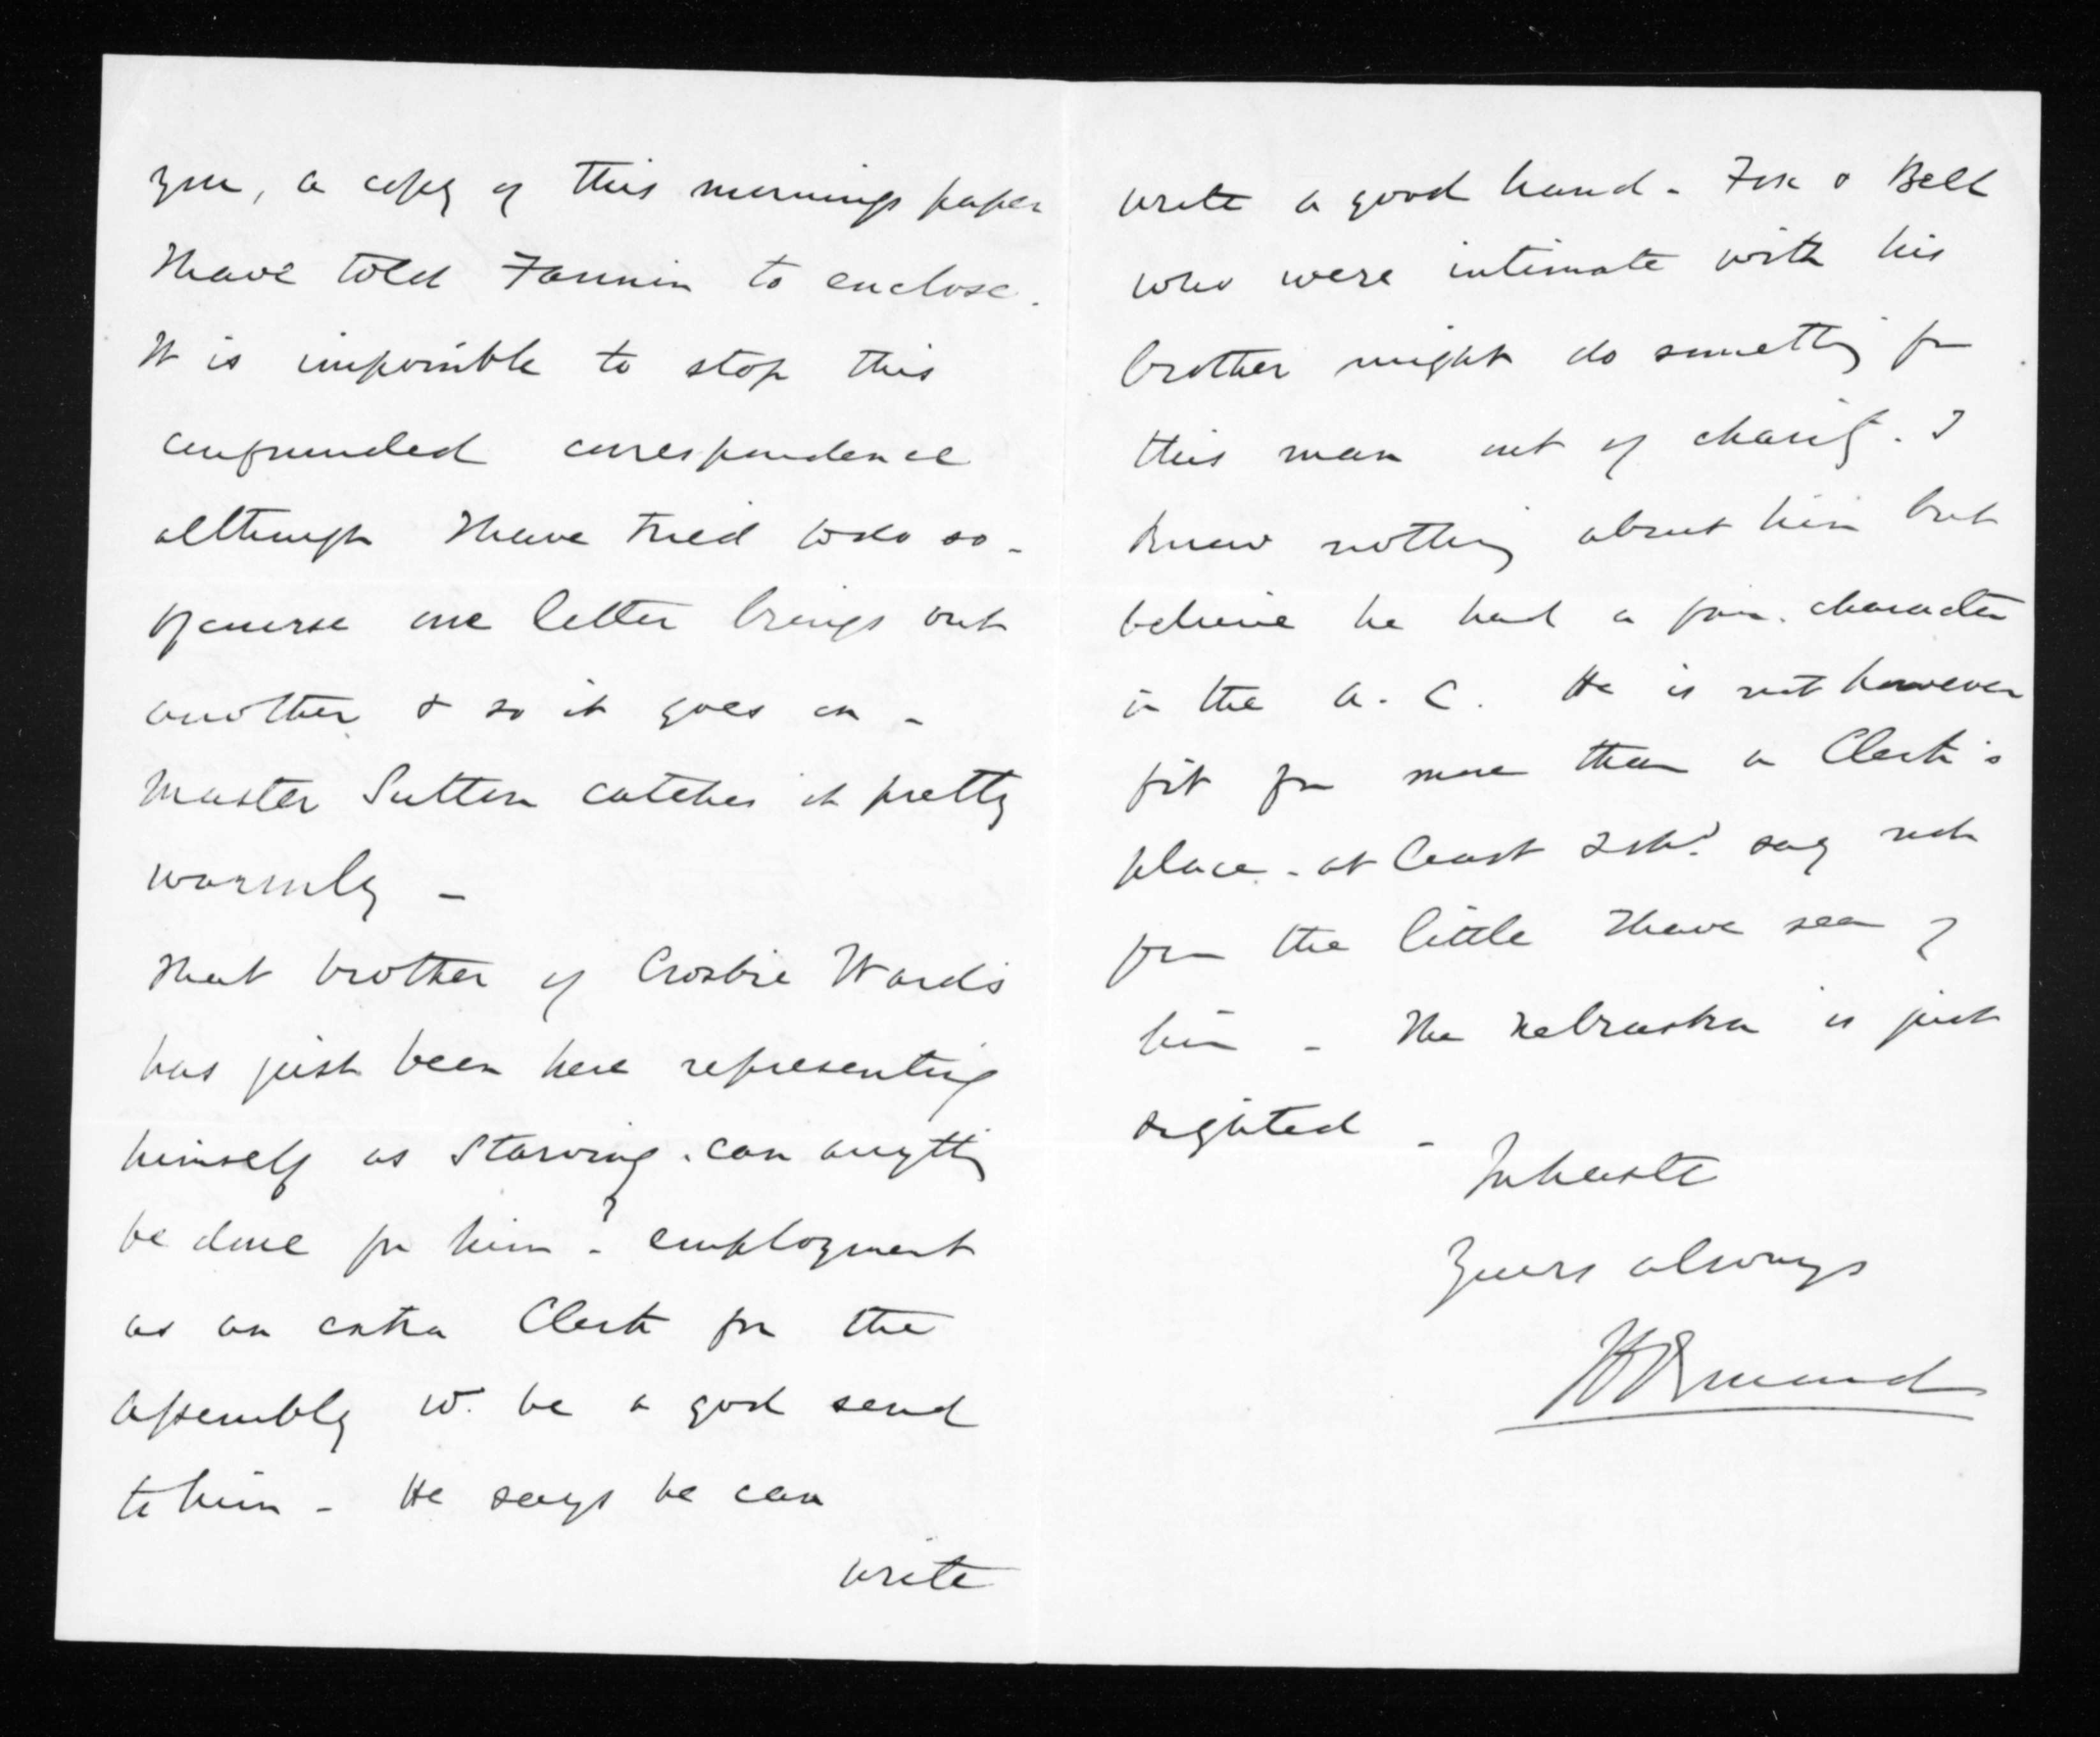 you, a copy of this mornings paper
I have told Fannin to enclose.
It is impossible to stop this
confounded correspondence
although I have tried to do so -
of course one letter brings out
another & so it goes on -
Master Sutton catches it pretty
warmly -
That brother of Crosbie Ward's
has just been here representing
himself as starving. can anything
be done for him? - employment
as an extra Clerk for the
Assembly wd. be a god send
to him - He says he can
write
write a good hand - Fox & Bell
who were intimate with his
brother might do something for
this man out of charity. I
know nothing about him but
believe he had a fair character
in the A. C. He is not however
fit for more than a Clerk's
place - at least I shd. say not
from the little I have seen of
him - The Nebraska is just
sighted -
In haste
Yours always